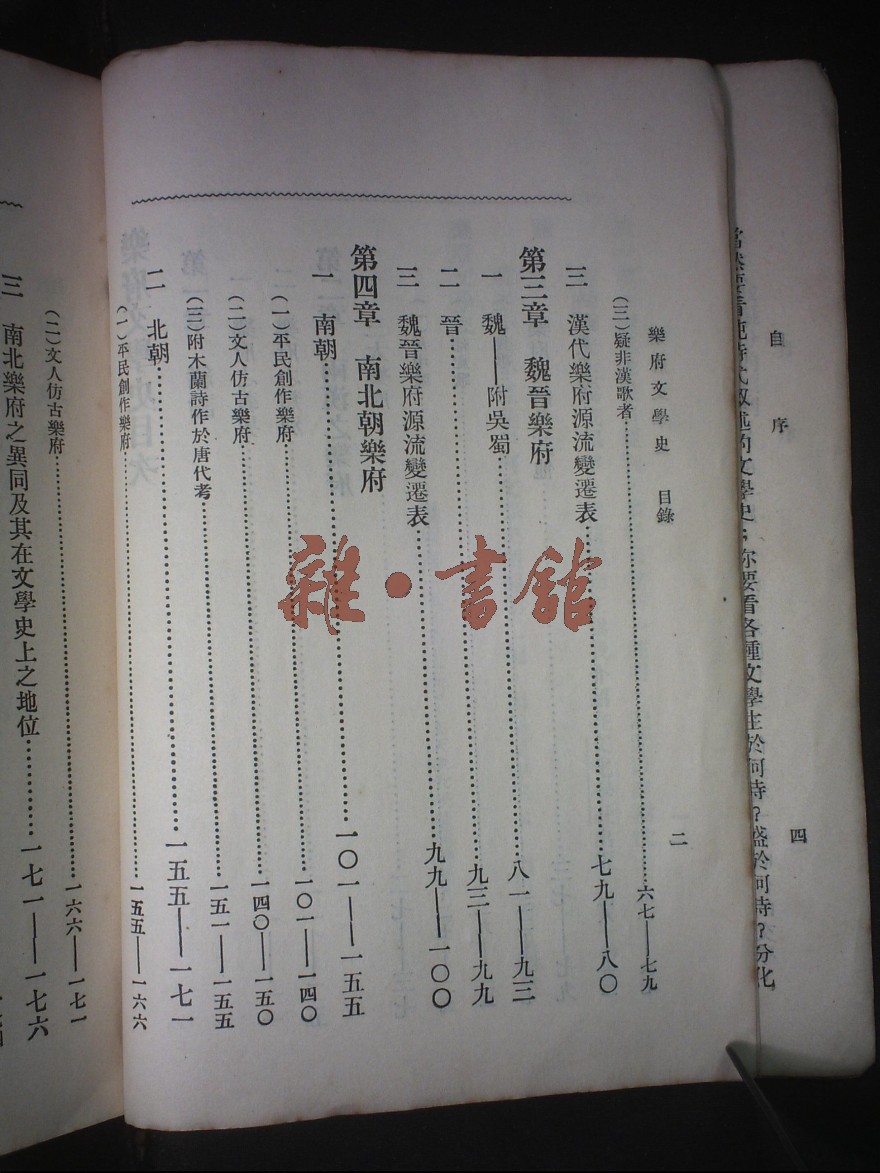 自序 四
當然要看他時代敘述的文學史；你要看各種文學生於何時？盛於何時？分化
樂府文學史 目錄 二
（三）疑非漢歌者……六七——七九
三 漢代樂府源流變遷表……七九——八〇
第三章 魏晉樂府
一 魏——附吳蜀……八一——九三
二 晉……九三——九九
三 魏晉樂府源流變遷表……九九——一〇〇
第四章 南北朝樂府
一 南朝……一〇一——一五五
（一）平民創作樂府……一〇一——一四〇
（二）文人仿古樂府……一四〇——一五〇
（三）附木蘭詩作於唐代考……一五一——一五五
二 北朝……一五五——一七一
（一）平民創作樂府……一五五——一六六
（二）文人仿古樂府……一六六——一七一
三 南北樂府之異同及其在文學史上之地位……一七一——一七六
雜·書館